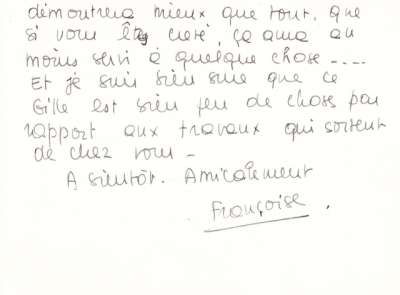 démontrera mieux que tout. que
si vous êtes ciré, ça aura au
moins servi à quelque chose .....
Et je suis bien sure que ce
Gille est bien peu de choses par
rapport aux travaux qui sortent
de chez vous -
A bientôt. Amicalement
Françoise.